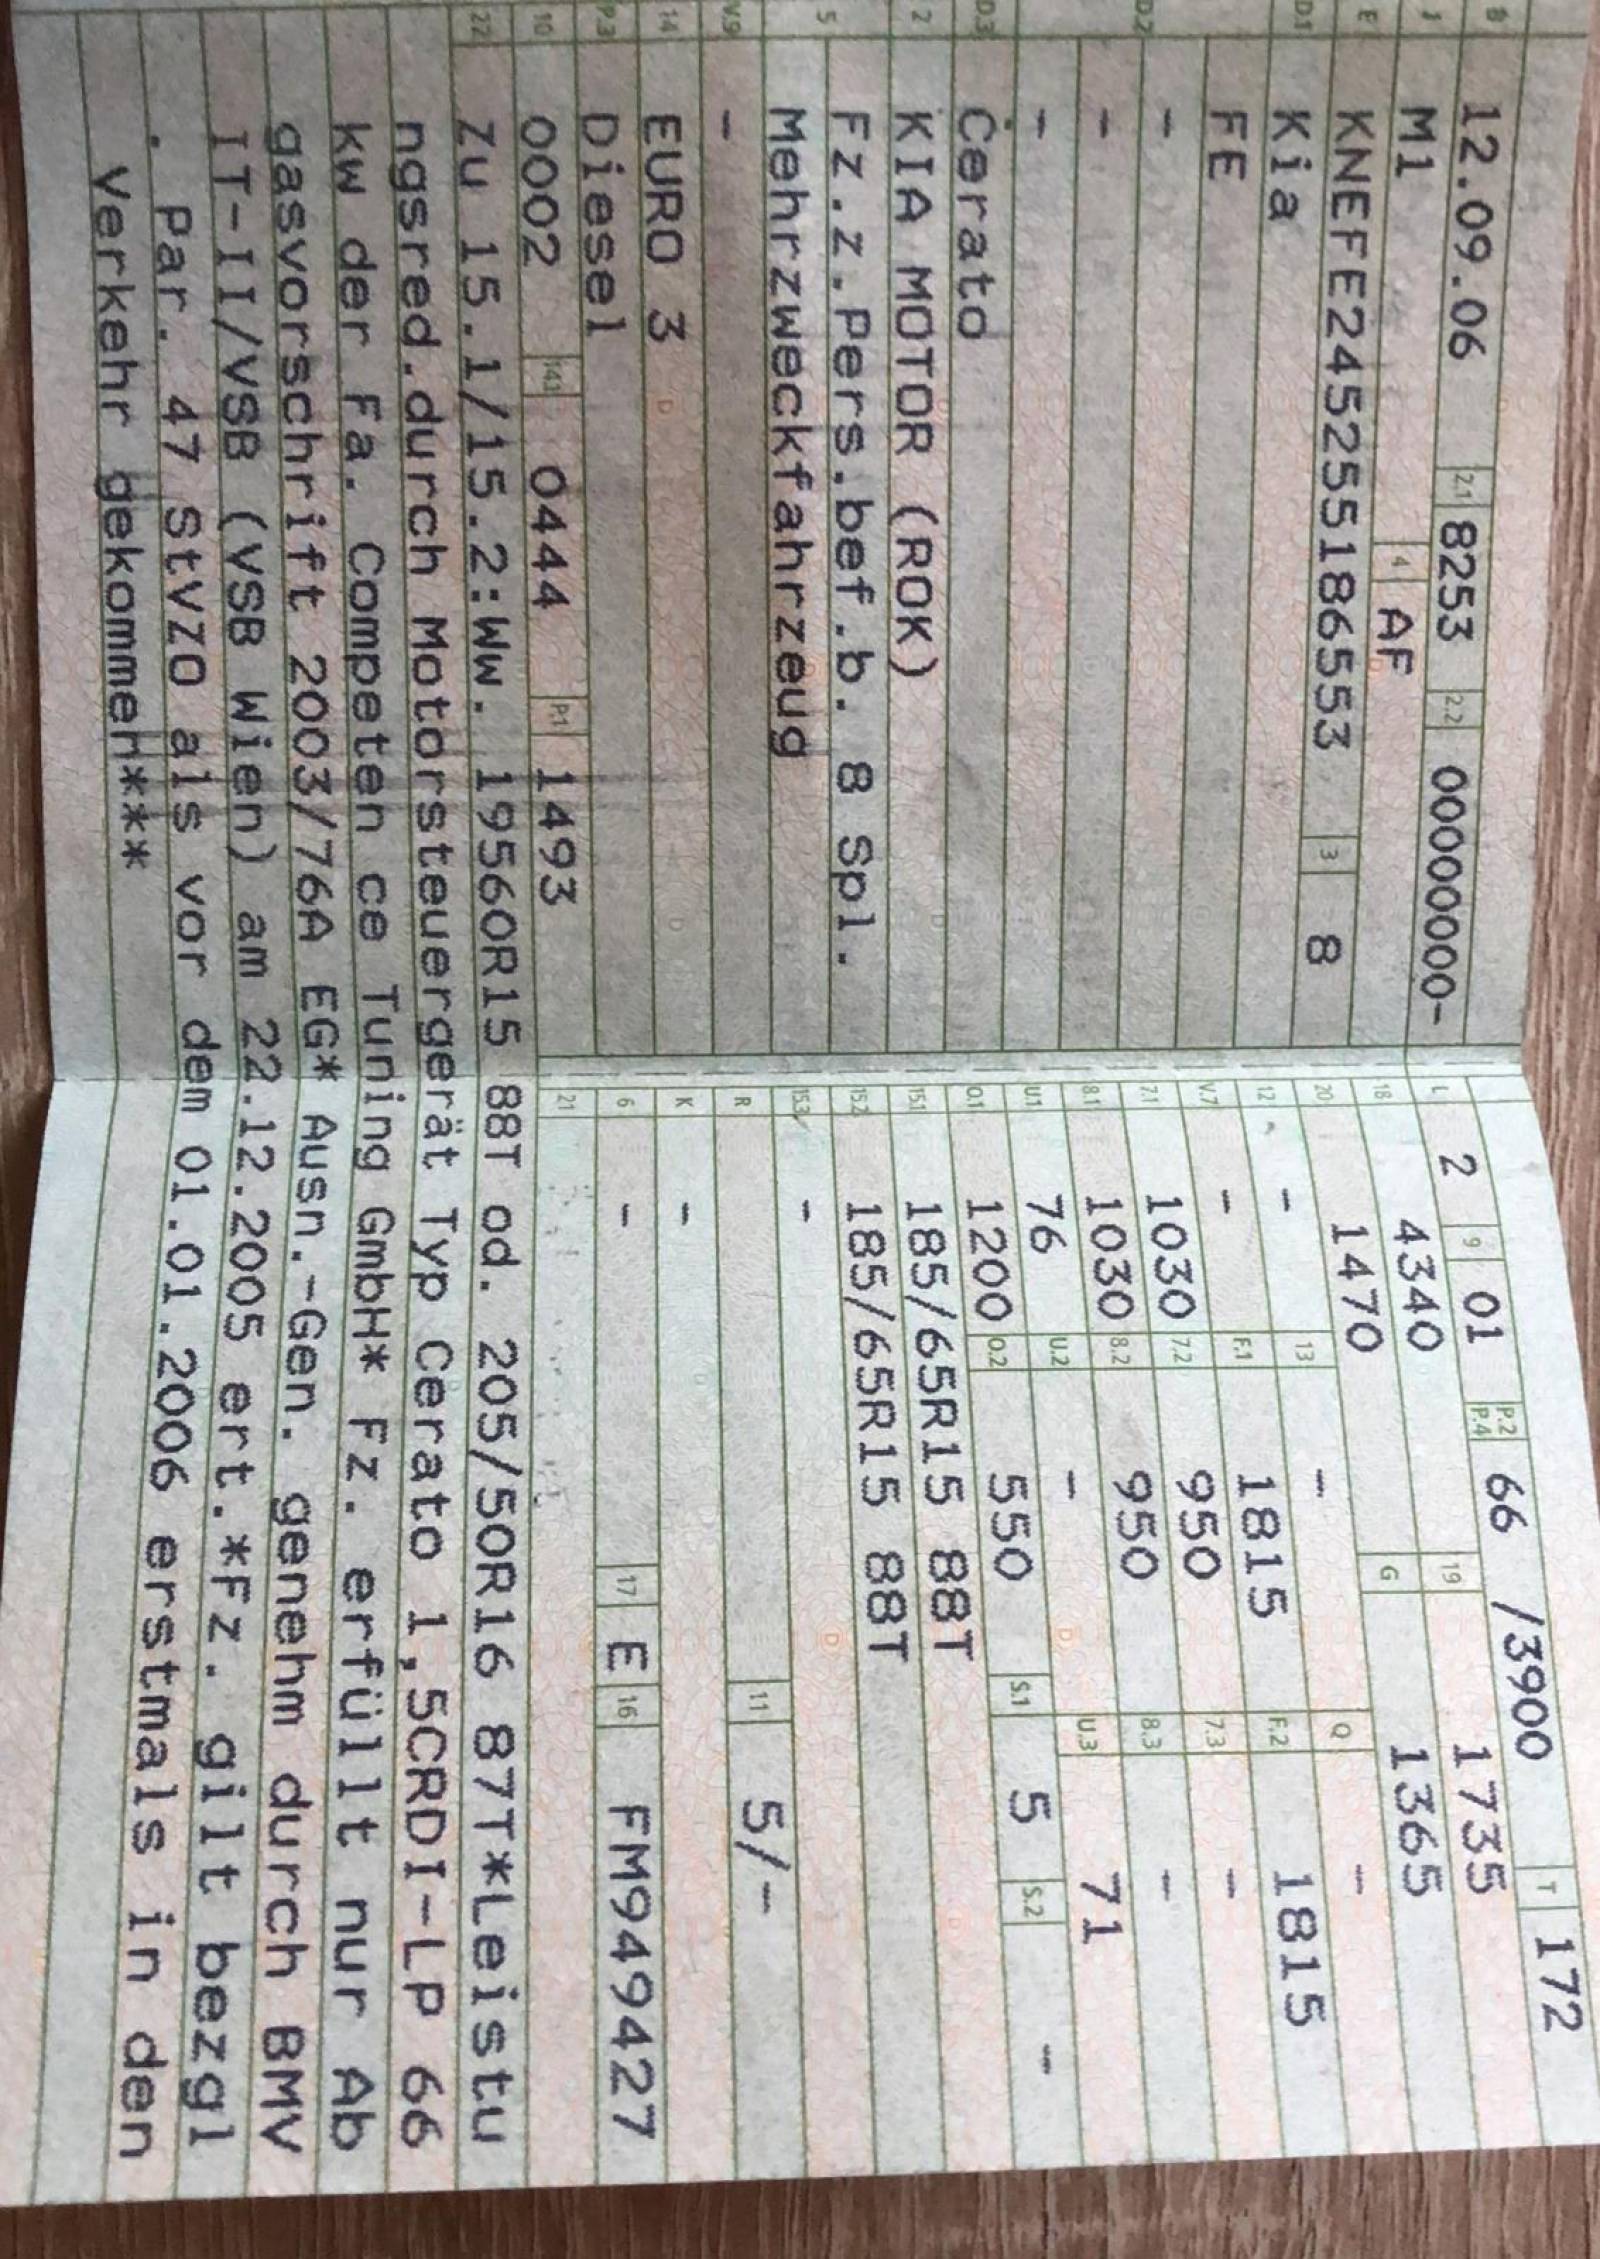 B 12.09.06 2.1 8253 2.2 00000000-
J M1 4 AF
E KNEFE245255186553 3 8
D.1 Kia
FE
D.2 -
-
-
D.3 Cerato
2 KIA MOTOR (ROK)
5 Fz.z.Pers.bef.b. 8 Spl.
Mehrzweckfahrzeug
V.9 -
14 EURO 3
P.3 Diesel
10 0002 14.1 0444 P.1 1493
L 2 9 01 P.2 P.4 66 /3900 T 172
18 4340 19 1735
20 1470 G 1365
12 - 13 - Q -
V.7 - F.1 1815 F.2 1815
7.1 1030 7.2 950 7.3 -
8.1 1030 8.2 950 8.3 -
U.1 76 U.2 - U.3 71
O.1 1200 O.2 550 S.1 5 S.2 -
15.1 185/65R15 88T
15.2 185/65R15 88T
15.3 -
R 11 5/-
K -
6 - 17 E 16 FM949427
21
22 Zu 15.1/15.2:Ww. 19560R15 88T od. 205/50R16 87T*Leistu
ngsred.durch Motorsteuergerät Typ Cerato 1,5CRDI-LP 66
kw der Fa. Competen ce Tuning GmbH* Fz. erfüllt nur Ab
gasvorschrift 2003/76A EG* Ausn.-Gen. genehm durch BMV
IT-II/VSB (VSB Wien) am 22.12.2005 ert.*Fz. gilt bezgl
. Par. 47 StVZO als vor dem 01.01.2006 erstmals in den
Verkehr gekommen***